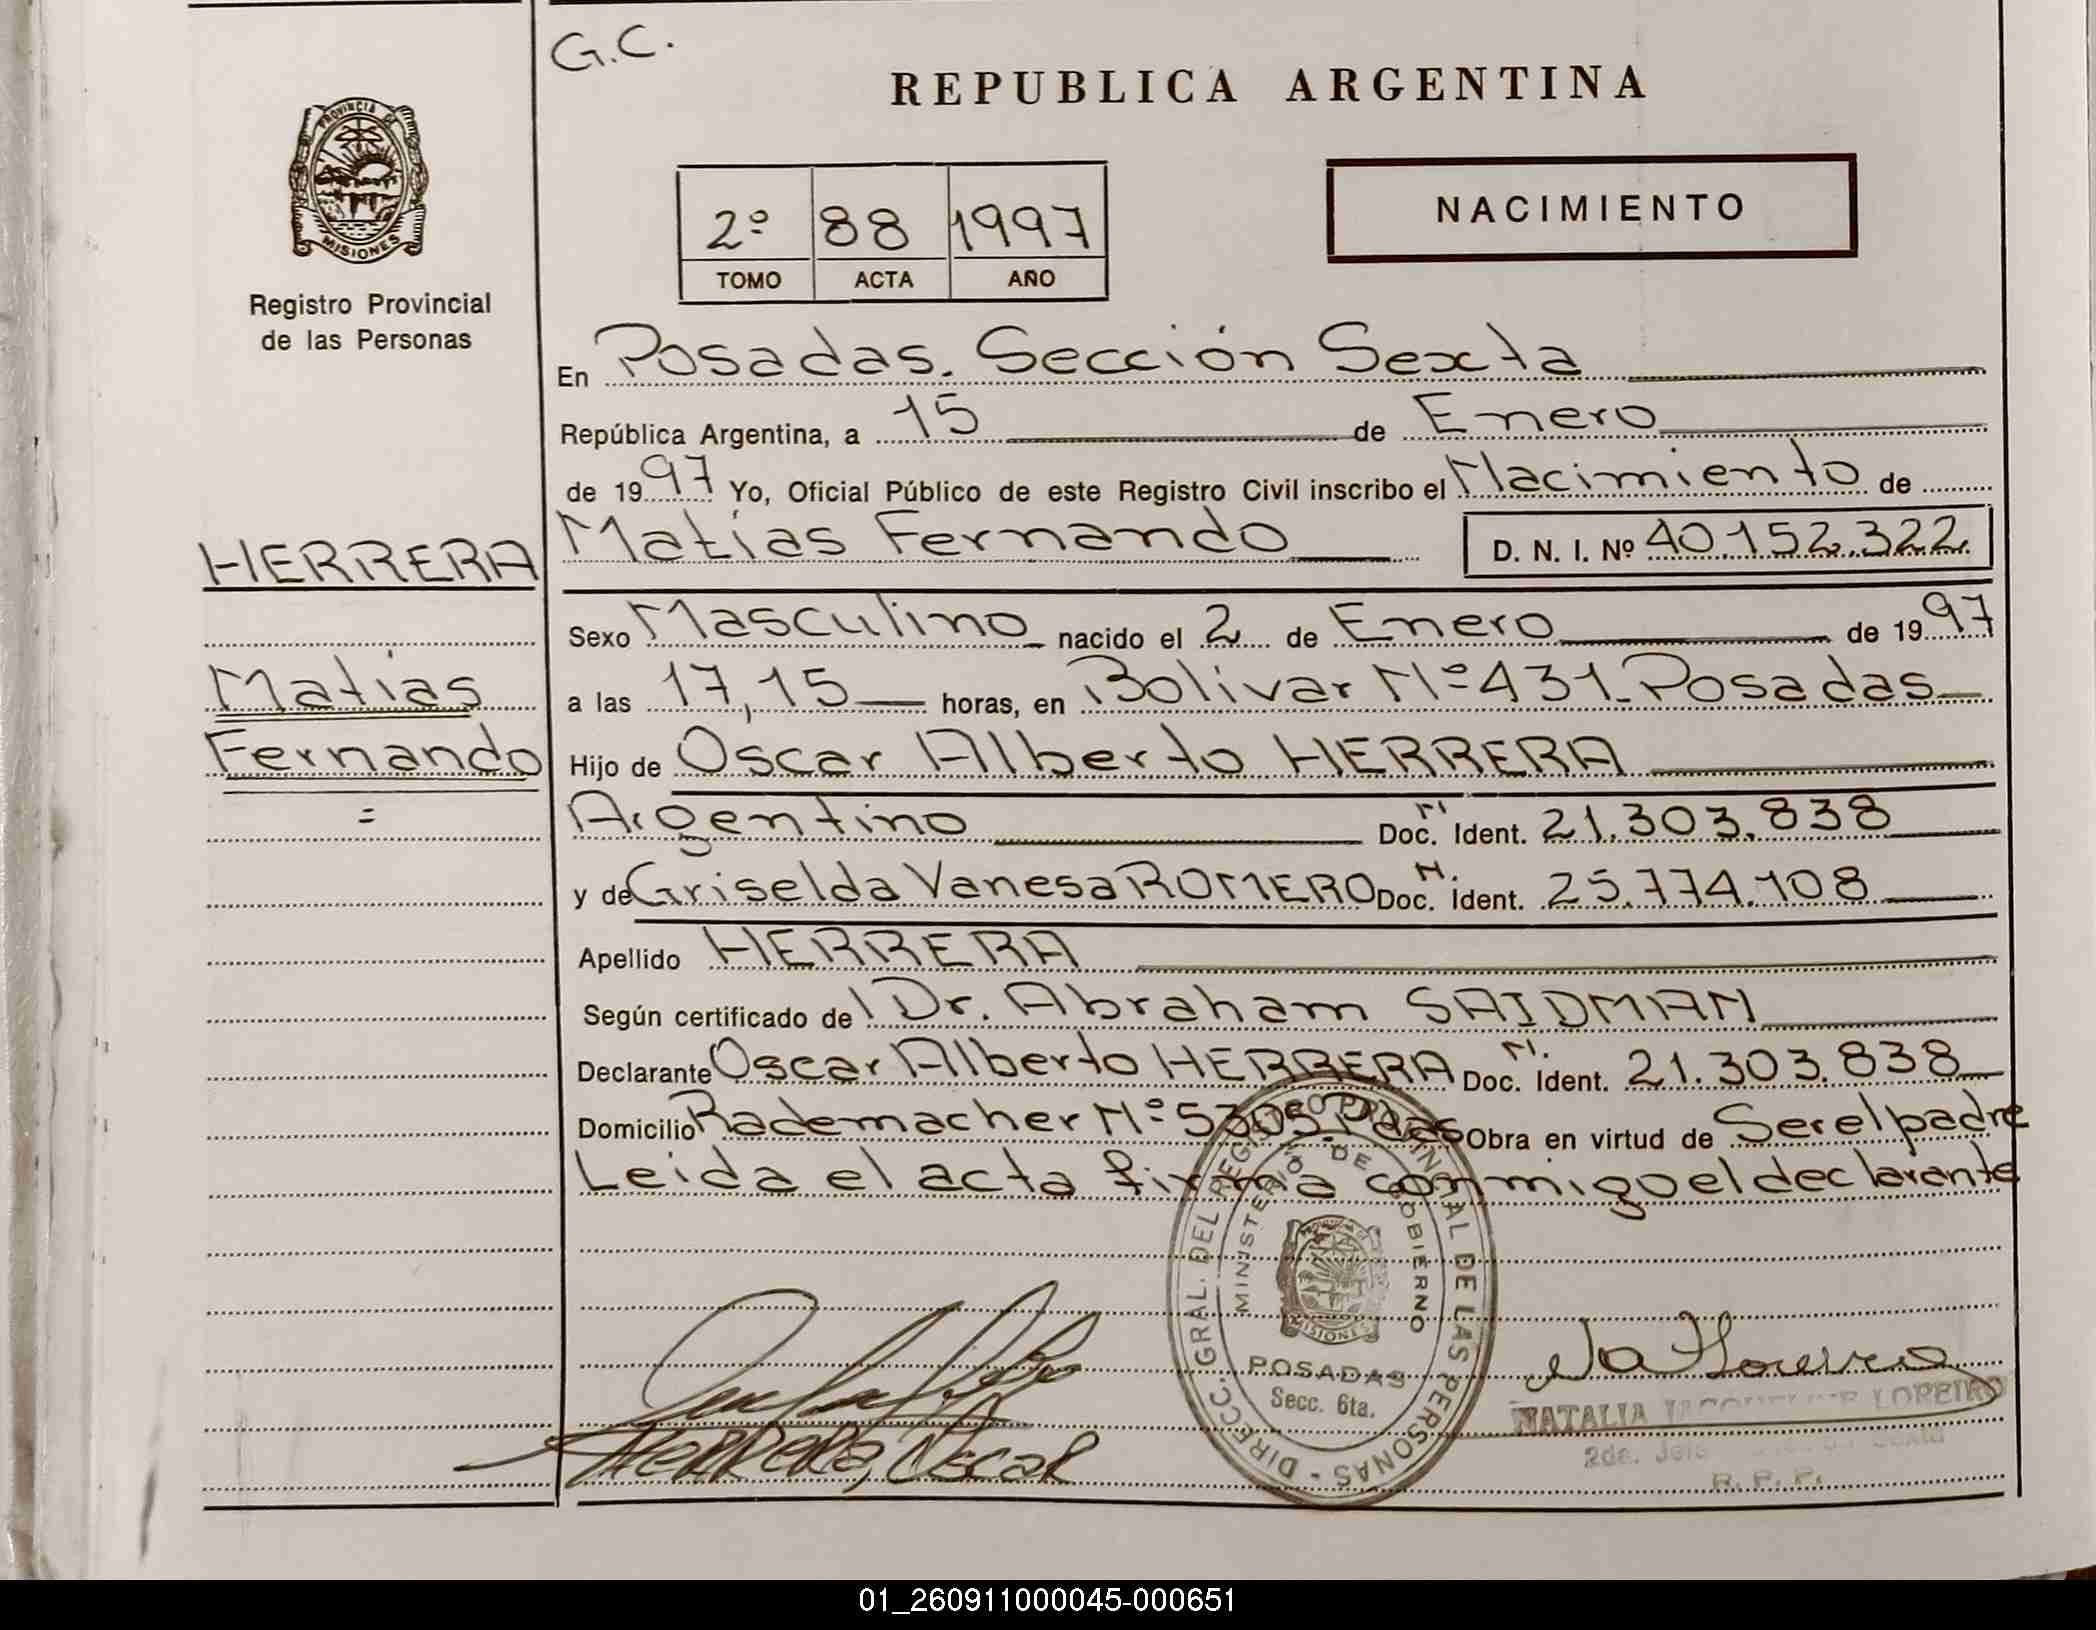 G.C.
REPUBLICA ARGENTINA
PROVINCIA DE
MISIONES
Registro Provincial
de las Personas
2º 88 1997
TOMO ACTA AÑO
NACIMIENTO
En Posadas. Sección Sexta
República Argentina, a 15 de Enero
de 1997 Yo, Oficial Público de este Registro Civil inscribo el Nacimiento de
HERRERA
Matías Fernando D. N. I. Nº 40.152.322
Sexo Masculino nacido el 2 de Enero de 1997
Matías
a las 17,15 horas, en Bolivar Nº 431 Posadas
Fernando
Hijo de Oscar Alberto HERRERA
=
Argentino Doc. N. Ident. 21.303.838
y de Griselda Vanesa ROMERO Doc. N. Ident. 25.774.108
Apellido HERRERA
Según certificado de Dr. Abraham SAIDMAN
Declarante Oscar Alberto HERRERA Doc. N. Ident. 21.303.838
Domicilio Rademacher Nº 5305. Pdas Obra en virtud de Ser el padre
Leida el acta firma conmigo el declarante
DIRECC. GRAL. DEL REGISTRO PROVINCIAL DE LAS PERSONAS
MINISTERIO DE GOBIERNO
MISIONES
POSADAS
Secc. 6ta.
HERRERA, Oscar
NATALIA JACQUELINE LOREIRO
2da. Jefe
R. P. P.
01_260911000045-000651